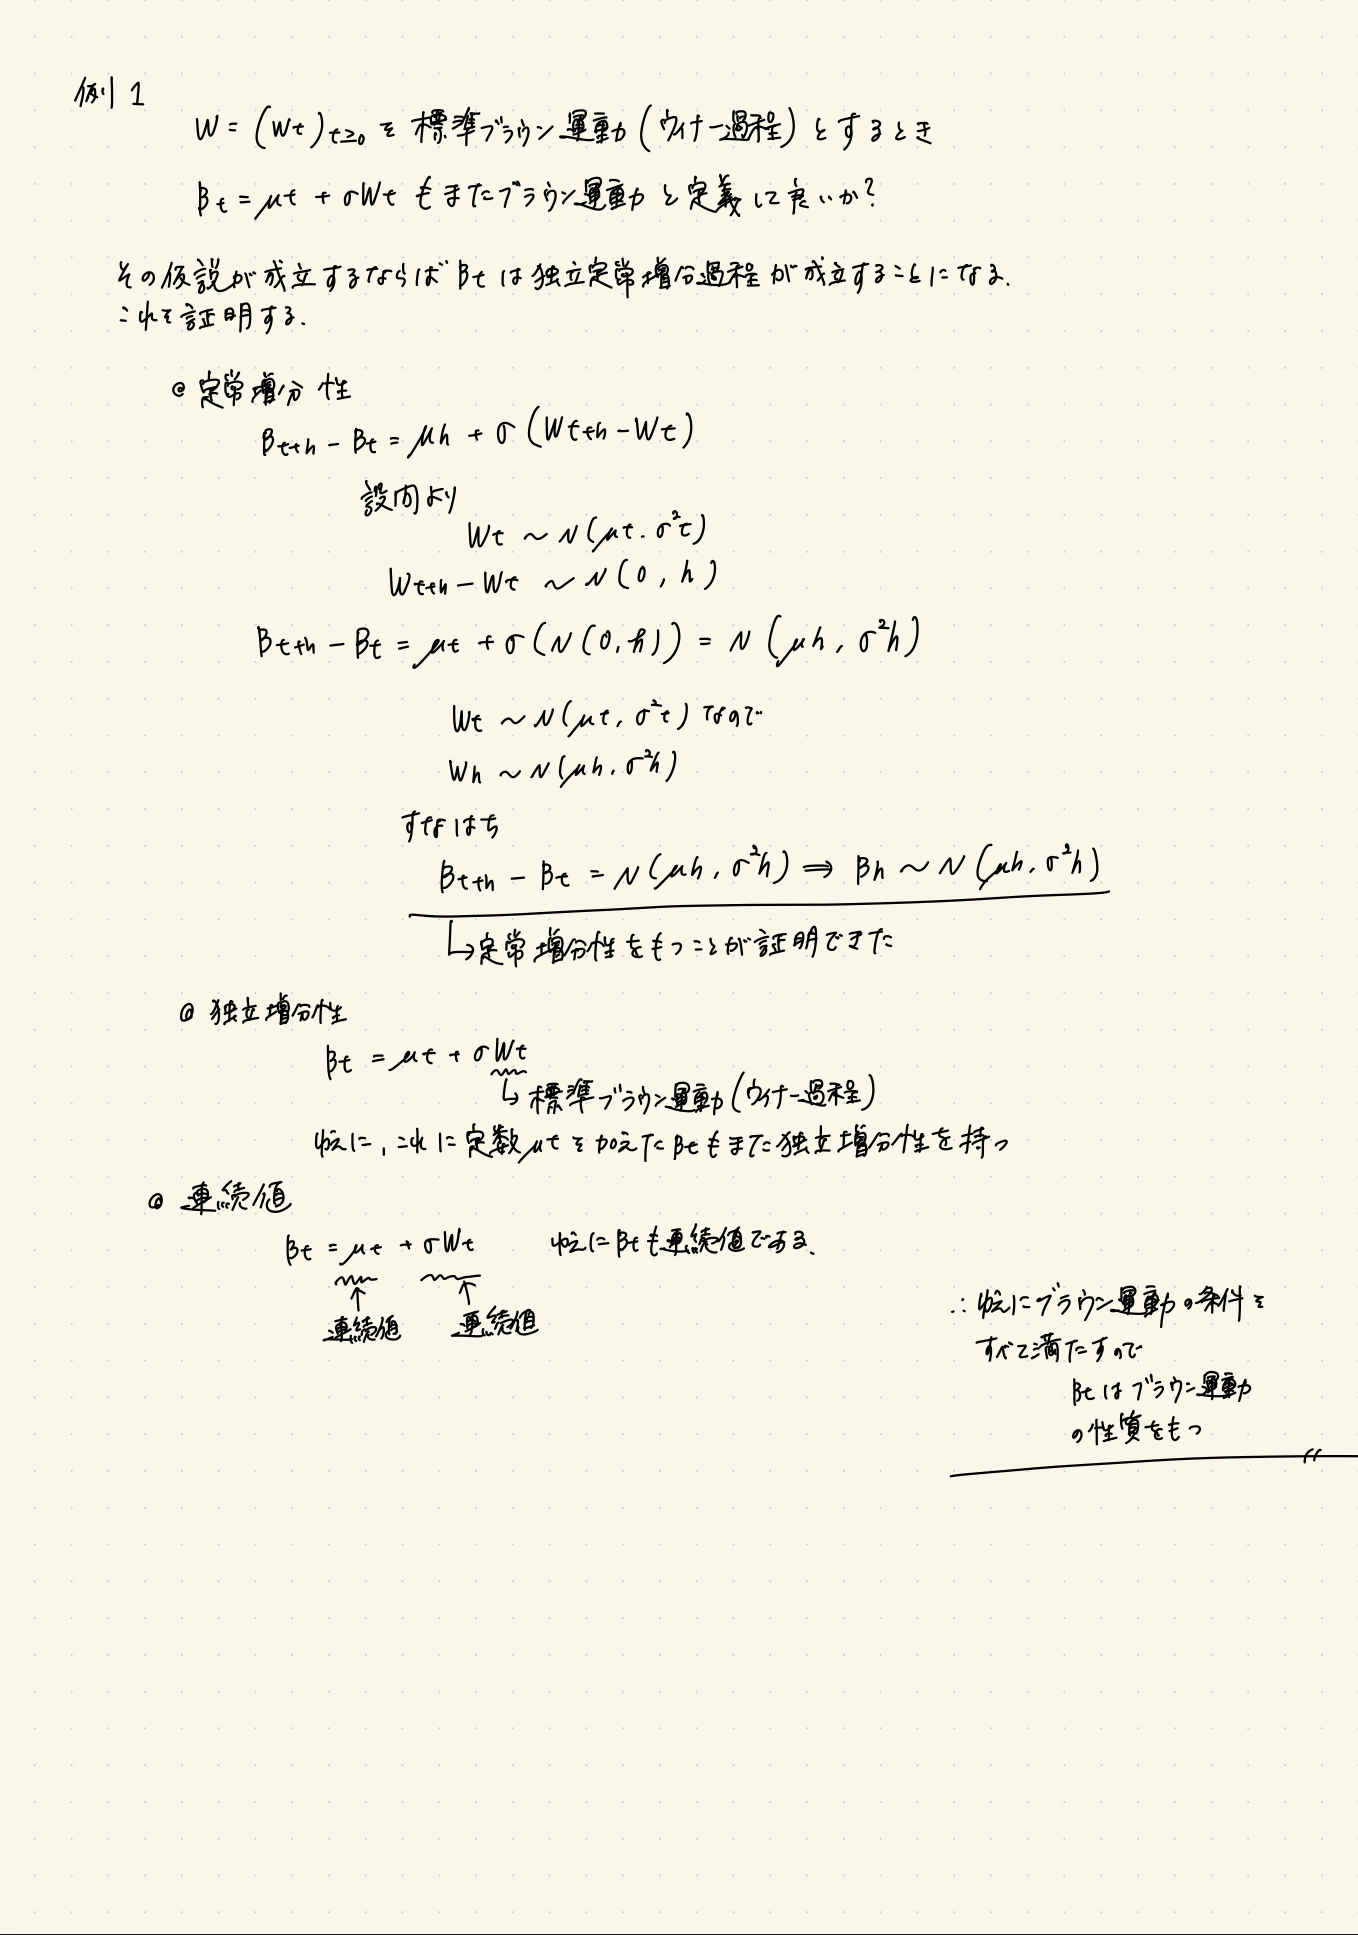 例 1
W = (Wt)t≥0 を 標準ブラウン運動 (ウィナー過程) とするとき
Bt = μt + σWt もまたブラウン運動 と 定義して良いか?
その仮説が成立するならば Bt は独立定常増分過程が成立することになる.
これを証明する.
@ 定常増分性
Bt+h − Bt = μh + σ (Wt+h − Wt)
設問より
Wt ~ N(μt. σ²t)
Wt+h − Wt ~ N(0, h)
Bt+h − Bt = μt + σ(N(0, h)) = N(μh, σ²h)
Wt ~ N(μt, σ²t) なので
Wh ~ N(μh, σ²h)
すなはち
Bt+h − Bt = N(μh, σ²h) ⇒ Bh ~ N(μh, σ²h)
↳ 定常増分性をもつことが証明できた
@ 独立増分性
Bt = μt + σWt
↳ 標準ブラウン運動 (ウィナー過程)
ゆえに, これに定数μtを加えたBtもまた独立増分性を持つ
@ 連続値
Bt = μt + σWt ゆえにBtも連続値である.
↑ ↑
連続値 連続値
∴ ゆえにブラウン運動の条件を
すべて満たすので
Btはブラウン運動
の性質をもつ